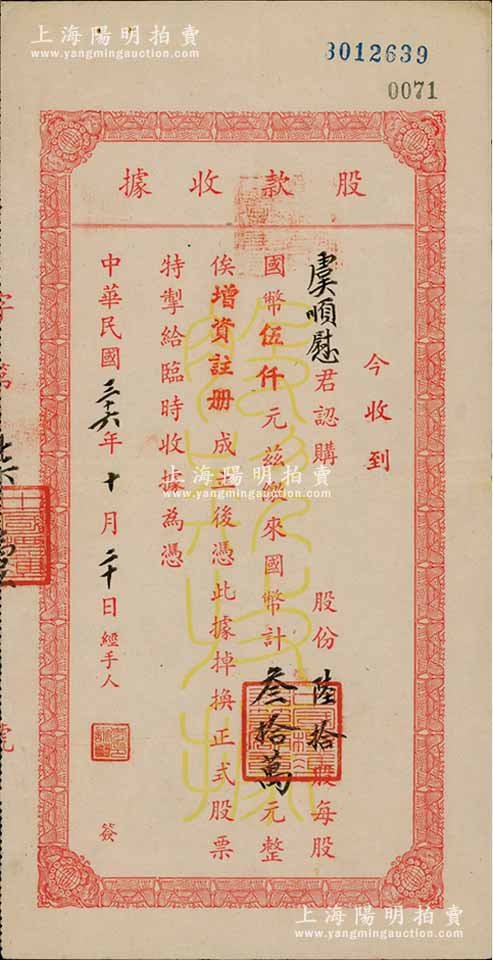 上海陽明拍賣
www.yangmingauction.com
3012639
0071
股款收據
今收到
虞順慰君認購 股份陸拾股每股
國幣伍仟元茲繳來國幣計叁拾萬元整
俟增資註册成立後憑此據掉換正式股票
特掣給臨時收據為憑
中華民國三十六年十月二十日經手人 簽
字第
號
上海陽明拍賣
www.yangmingauction.com
上海陽明拍賣
www.yangmingauction.com